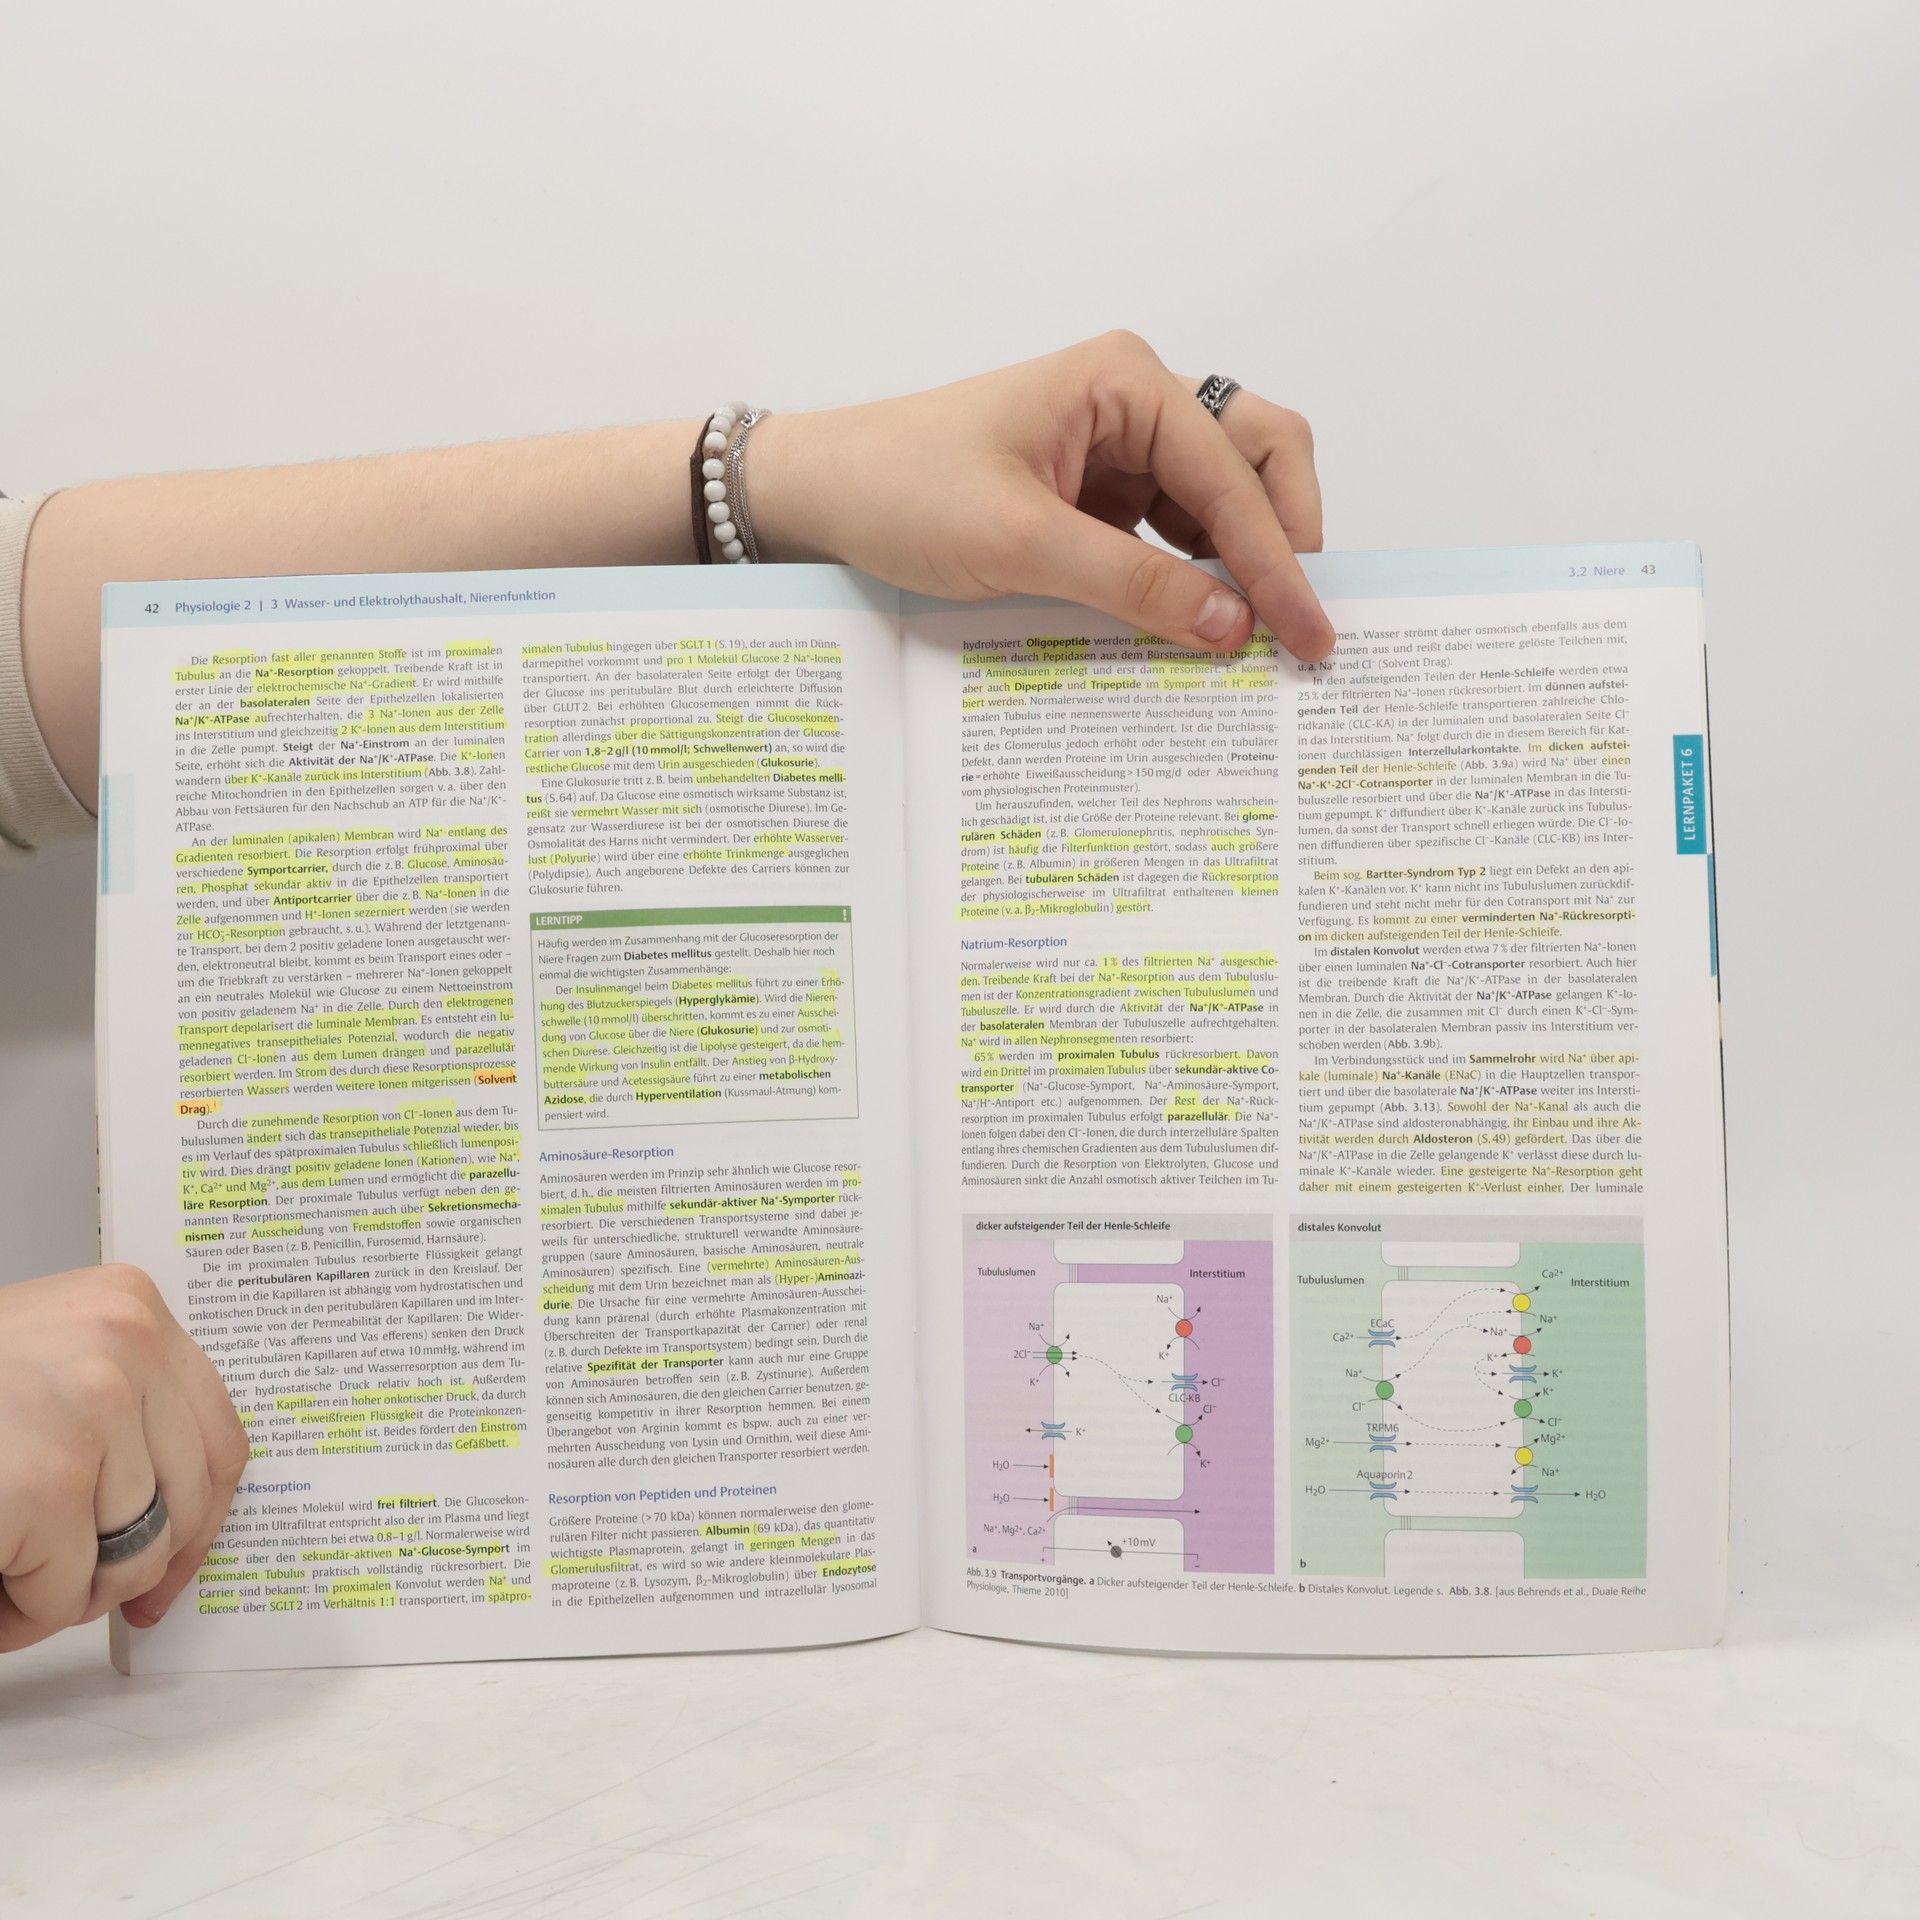 42 Physiologie 2 | 3 Wasser- und Elektrolythaushalt, Nierenfunktion
Die Resorption fast aller genannten Stoffe ist im proximalen
Tubulus an die Na⁺-Resorption gekoppelt. Treibende Kraft ist in
erster Linie der elektrochemische Na⁺-Gradient. Er wird mithilfe
der an der basolateralen Seite der Epithelzellen lokalisierten
Na⁺/K⁺-ATPase aufrechterhalten, die 3 Na⁺-Ionen aus der Zelle
ins Interstitium und gleichzeitig 2 K⁺-Ionen aus dem Interstitium
in die Zelle pumpt. Steigt der Na⁺-Einstrom an der luminalen
Seite, erhöht sich die Aktivität der Na⁺/K⁺-ATPase. Die K⁺-Ionen
wandern über K⁺-Kanäle zurück ins Interstitium (Abb. 3.8). Zahl-
reiche Mitochondrien in den Epithelzellen sorgen v. a. über den
Abbau von Fettsäuren für den Nachschub an ATP für die Na⁺/K⁺-
ATPase.
An der luminalen (apikalen) Membran wird Na⁺ entlang des
Gradienten resorbiert. Die Resorption erfolgt frühproximal über
verschiedene Symportcarrier, durch die z. B. Glucose, Aminosäu-
ren, Phosphat sekundär aktiv in die Epithelzellen transportiert
werden, und über Antiportcarrier über die z. B. Na⁺-Ionen in die
Zelle aufgenommen und H⁺-Ionen sezerniert werden (sie werden
zur HCO₃⁻-Resorption gebraucht, s. u.). Während der letztgenann-
te Transport, bei dem 2 positiv geladene Ionen ausgetauscht wer-
den, elektroneutral bleibt, kommt es beim Transport eines oder –
um die Triebkraft zu verstärken – mehrerer Na⁺-Ionen gekoppelt
an ein neutrales Molekül wie Glucose zu einem Nettoeinstrom
von positiv geladenem Na⁺ in die Zelle. Durch den elektrogenen
Transport depolarisiert die luminale Membran. Es entsteht ein lu-
mennegatives transepitheliales Potenzial, wodurch die negativ
geladenen Cl⁻-Ionen aus dem Lumen drängen und parazellulär
resorbiert werden. Im Strom des durch diese Resorptionsprozesse
resorbierten Wassers werden weitere Ionen mitgerissen (Solvent
Drag).
Durch die zunehmende Resorption von Cl⁻-Ionen aus dem Tu-
buluslumen ändert sich das transepitheliale Potenzial wieder, bis
es im Verlauf des spätproximalen Tubulus schließlich lumenposi-
tiv wird. Dies drängt positiv geladene Ionen (Kationen), wie Na⁺,
K⁺, Ca²⁺ und Mg²⁺, aus dem Lumen und ermöglicht die parazellu-
läre Resorption. Der proximale Tubulus verfügt neben den ge-
nannten Resorptionsmechanismen auch über Sekretionsmecha-
nismen zur Ausscheidung von Fremdstoffen sowie organischen
Säuren oder Basen (z. B. Penicillin, Furosemid, Harnsäure).
Die im proximalen Tubulus resorbierte Flüssigkeit gelangt
über die peritubulären Kapillaren zurück in den Kreislauf. Der
Einstrom in die Kapillaren ist abhängig vom hydrostatischen und
onkotischen Druck in den peritubulären Kapillaren und im Inter-
stitium sowie von der Permeabilität der Kapillaren: Die Wider-
andsgefäße (Vas afferens und Vas efferens) senken den Druck
en peritubulären Kapillaren auf etwa 10 mmHg, während im
titium durch die Salz- und Wasserresorption aus dem Tu-
der hydrostatische Druck relativ hoch ist. Außerdem
in den Kapillaren ein hoher onkotischer Druck, da durch
tion einer eiweißfreien Flüssigkeit die Proteinkonzen-
den Kapillaren erhöht ist. Beides fördert den Einstrom
gkeit aus dem Interstitium zurück in das Gefäßbett.
e-Resorption
se als kleines Molekül wird frei filtriert. Die Glucosekon-
ration im Ultrafiltrat entspricht also der im Plasma und liegt
im Gesunden nüchtern bei etwa 0,8–1 g/l. Normalerweise wird
Glucose über den sekundär-aktiven Na⁺-Glucose-Symport im
proximalen Tubulus praktisch vollständig rückresorbiert. Die
Carrier sind bekannt: Im proximalen Konvolut werden Na⁺ und
Glucose über SGLT2 im Verhältnis 1:1 transportiert, im spätpro-
ximalen Tubulus hingegen über SGLT 1 (S. 19), der auch im Dünn-
darmepithel vorkommt und pro 1 Molekül Glucose 2 Na⁺-Ionen
transportiert. An der basolateralen Seite erfolgt der Übergang
der Glucose ins peritubuläre Blut durch erleichterte Diffusion
über GLUT2. Bei erhöhten Glucosemengen nimmt die Rück-
resorption zunächst proportional zu. Steigt die Glucosekonzen-
tration allerdings über die Sättigungskonzentration der Glucose-
Carrier von 1,8–2 g/l (10 mmol/l; Schwellenwert) an, so wird die
restliche Glucose mit dem Urin ausgeschieden (Glukosurie).
Eine Glukosurie tritt z. B. beim unbehandelten Diabetes melli-
tus (S. 64) auf. Da Glucose eine osmotisch wirksame Substanz ist,
reißt sie vermehrt Wasser mit sich (osmotische Diurese). Im Ge-
gensatz zur Wasserdiurese ist bei der osmotischen Diurese die
Osmolalität des Harns nicht vermindert. Der erhöhte Wasserver-
lust (Polyurie) wird über eine erhöhte Trinkmenge ausgeglichen
(Polydipsie). Auch angeborene Defekte des Carriers können zur
Glukosurie führen.
LERNTIPP !
Häufig werden im Zusammenhang mit der Glucoseresorption der
Niere Fragen zum Diabetes mellitus gestellt. Deshalb hier noch
einmal die wichtigsten Zusammenhänge:
Der Insulinmangel beim Diabetes mellitus führt zu einer Erhö-
hung des Blutzuckerspiegels (Hyperglykämie). Wird die Nieren-
schwelle (10 mmol/l) überschritten, kommt es zu einer Ausschei-
dung von Glucose über die Niere (Glukosurie) und zur osmoti-
schen Diurese. Gleichzeitig ist die Lipolyse gesteigert, da die hem-
mende Wirkung von Insulin entfällt. Der Anstieg von β-Hydroxy-
buttersäure und Acetessigsäure führt zu einer metabolischen
Azidose, die durch Hyperventilation (Kussmaul-Atmung) kom-
pensiert wird.
Aminosäure-Resorption
Aminosäuren werden im Prinzip sehr ähnlich wie Glucose resor-
biert, d. h., die meisten filtrierten Aminosäuren werden im pro-
ximalen Tubulus mithilfe sekundär-aktiver Na⁺-Symporter rück-
resorbiert. Die verschiedenen Transportsysteme sind dabei je-
weils für unterschiedliche, strukturell verwandte Aminosäure-
gruppen (saure Aminosäuren, basische Aminosäuren, neutrale
Aminosäuren) spezifisch. Eine (vermehrte) Aminosäuren-Aus-
scheidung mit dem Urin bezeichnet man als (Hyper-)Aminoazi-
durie. Die Ursache für eine vermehrte Aminosäuren-Ausschei-
dung kann prärenal (durch erhöhte Plasmakonzentration mit
Überschreiten der Transportkapazität der Carrier) oder renal
(z. B. durch Defekte im Transportsystem) bedingt sein. Durch die
relative Spezifität der Transporter kann auch nur eine Gruppe
von Aminosäuren betroffen sein (z. B. Zystinurie). Außerdem
können sich Aminosäuren, die den gleichen Carrier benutzen, ge-
genseitig kompetitiv in ihrer Resorption hemmen. Bei einem
Überangebot von Arginin kommt es bspw. auch zu einer ver-
mehrten Ausscheidung von Lysin und Ornithin, weil diese Ami-
nosäuren alle durch den gleichen Transporter resorbiert werden.
Resorption von Peptiden und Proteinen
Größere Proteine (> 70 kDa) können normalerweise den glome-
rulären Filter nicht passieren. Albumin (69 kDa), das quantitativ
wichtigste Plasmaprotein, gelangt in geringen Mengen in das
Glomerulusfiltrat, es wird so wie andere kleinmolekulare Plas-
maproteine (z. B. Lysozym, β₂-Mikroglobulin) über Endozytose
in die Epithelzellen aufgenommen und intrazellulär lysosomal
3.2 Niere 43
hydrolysiert. Oligopeptide werden größte Tubu-
luslumen durch Peptidasen aus dem Bürstensaum in Dipeptide
und Aminosäuren zerlegt und erst dann resorbiert. Es können
aber auch Dipeptide und Tripeptide im Symport mit H⁺ resor-
biert werden. Normalerweise wird durch die Resorption im pro-
ximalen Tubulus eine nennenswerte Ausscheidung von Amino-
säuren, Peptiden und Proteinen verhindert. Ist die Durchlässig-
keit des Glomerulus jedoch erhöht oder besteht ein tubulärer
Defekt, dann werden Proteine im Urin ausgeschieden (Proteinu-
rie = erhöhte Eiweißausscheidung > 150 mg/d oder Abweichung
vom physiologischen Proteinmuster).
Um herauszufinden, welcher Teil des Nephrons wahrschein-
lich geschädigt ist, ist die Größe der Proteine relevant. Bei glome-
rulären Schäden (z. B. Glomerulonephritis, nephrotisches Syn-
drom) ist häufig die Filterfunktion gestört, sodass auch größere
Proteine (z. B. Albumin) in größeren Mengen in das Ultrafiltrat
gelangen. Bei tubulären Schäden ist dagegen die Rückresorption
der physiologischerweise im Ultrafiltrat enthaltenen kleinen
Proteine (v. a. β₂-Mikroglobulin) gestört.
Natrium-Resorption
Normalerweise wird nur ca. 1 % des filtrierten Na⁺ ausgeschie-
den. Treibende Kraft bei der Na⁺-Resorption aus dem Tubuluslu-
men ist der Konzentrationsgradient zwischen Tubuluslumen und
Tubuluszelle. Er wird durch die Aktivität der Na⁺/K⁺-ATPase in
der basolateralen Membran der Tubuluszelle aufrechtgehalten.
Na⁺ wird in allen Nephronsegmenten resorbiert:
65 % werden im proximalen Tubulus rückresorbiert. Davon
wird ein Drittel im proximalen Tubulus über sekundär-aktive Co-
transporter (Na⁺-Glucose-Symport, Na⁺-Aminosäure-Symport,
Na⁺/H⁺-Antiport etc.) aufgenommen. Der Rest der Na⁺-Rück-
resorption im proximalen Tubulus erfolgt parazellulär. Die Na⁺-
Ionen folgen dabei den Cl⁻-Ionen, die durch interzelluläre Spalten
entlang ihres chemischen Gradienten aus dem Tubuluslumen dif-
fundieren. Durch die Resorption von Elektrolyten, Glucose und
Aminosäuren sinkt die Anzahl osmotisch aktiver Teilchen im Tu-
men. Wasser strömt daher osmotisch ebenfalls aus dem
slumen aus und reißt dabei weitere gelöste Teilchen mit,
u. a. Na⁺ und Cl⁻ (Solvent Drag).
In den aufsteigenden Teilen der Henle-Schleife werden etwa
25 % der filtrierten Na⁺-Ionen rückresorbiert. Im dünnen aufstei-
genden Teil der Henle-Schleife transportieren zahlreiche Chlo-
ridkanäle (CLC-KA) in der luminalen und basolateralen Seite Cl⁻
in das Interstitium. Na⁺ folgt durch die in diesem Bereich für Kat-
ionen durchlässigen Interzellularkontakte. Im dicken aufstei-
genden Teil der Henle-Schleife (Abb. 3.9a) wird Na⁺ über einen
Na⁺-K⁺-2Cl⁻-Cotransporter in der luminalen Membran in die Tu-
buluszelle resorbiert und über die Na⁺/K⁺-ATPase in das Intersti-
tium gepumpt. K⁺ diffundiert über K⁺-Kanäle zurück ins Tubulus-
lumen, da sonst der Transport schnell erliegen würde. Die Cl⁻-Io-
nen diffundieren über spezifische Cl⁻-Kanäle (CLC-KB) ins Inter-
stitium.
Beim sog. Bartter-Syndrom Typ 2 liegt ein Defekt an den api-
kalen K⁺-Kanälen vor. K⁺ kann nicht ins Tubuluslumen zurückdif-
fundieren und steht nicht mehr für den Cotransport mit Na⁺ zur
Verfügung. Es kommt zu einer verminderten Na⁺-Rückresorpti-
on im dicken aufsteigenden Teil der Henle-Schleife.
Im distalen Konvolut werden etwa 7 % der filtrierten Na⁺-Ionen
über einen luminalen Na⁺-Cl⁻-Cotransporter resorbiert. Auch hier
ist die treibende Kraft die Na⁺/K⁺-ATPase in der basolateralen
Membran. Durch die Aktivität der Na⁺/K⁺-ATPase gelangen K⁺-Io-
nen in die Zelle, die zusammen mit Cl⁻ durch einen K⁺-Cl⁻-Sym-
porter in der basolateralen Membran passiv ins Interstitium ver-
schoben werden (Abb. 3.9b).
Im Verbindungsstück und im Sammelrohr wird Na⁺ über api-
kale (luminale) Na⁺-Kanäle (ENaC) in die Hauptzellen transpor-
tiert und über die basolaterale Na⁺/K⁺-ATPase weiter ins Intersti-
tium gepumpt (Abb. 3.13). Sowohl der Na⁺-Kanal als auch die
Na⁺/K⁺-ATPase sind aldosteronabhängig, ihr Einbau und ihre Ak-
tivität werden durch Aldosteron (S. 49) gefördert. Das über die
Na⁺/K⁺-ATPase in die Zelle gelangende K⁺ verlässt diese durch lu-
minale K⁺-Kanäle wieder. Eine gesteigerte Na⁺-Resorption geht
daher mit einem gesteigerten K⁺-Verlust einher. Der luminale
LERNPAKET 6
dicker aufsteigender Teil der Henle-Schleife
Tubuluslumen
Interstitium
Na⁺
Na⁺
2Cl⁻
K⁺
K⁺
Cl⁻
CLC-KB
Cl⁻
K⁺
K⁺
H₂O
H₂O
Na⁺, Mg²⁺, Ca²⁺
+10 mV
+
−
a
distales Konvolut
Tubuluslumen
Interstitium
Ca²⁺
ECaC
Ca²⁺
Na⁺
Na⁺
K⁺
Na⁺
K⁺
K⁺
Cl⁻
Cl⁻
TRPM6
Mg²⁺
Mg²⁺
Na⁺
Aquaporin 2
H₂O
H₂O
b
Abb. 3.9 Transportvorgänge. a Dicker aufsteigender Teil der Henle-Schleife. b Distales Konvolut. Legende s. Abb. 3.8. [aus Behrends et al., Duale Reihe
Physiologie, Thieme 2010]